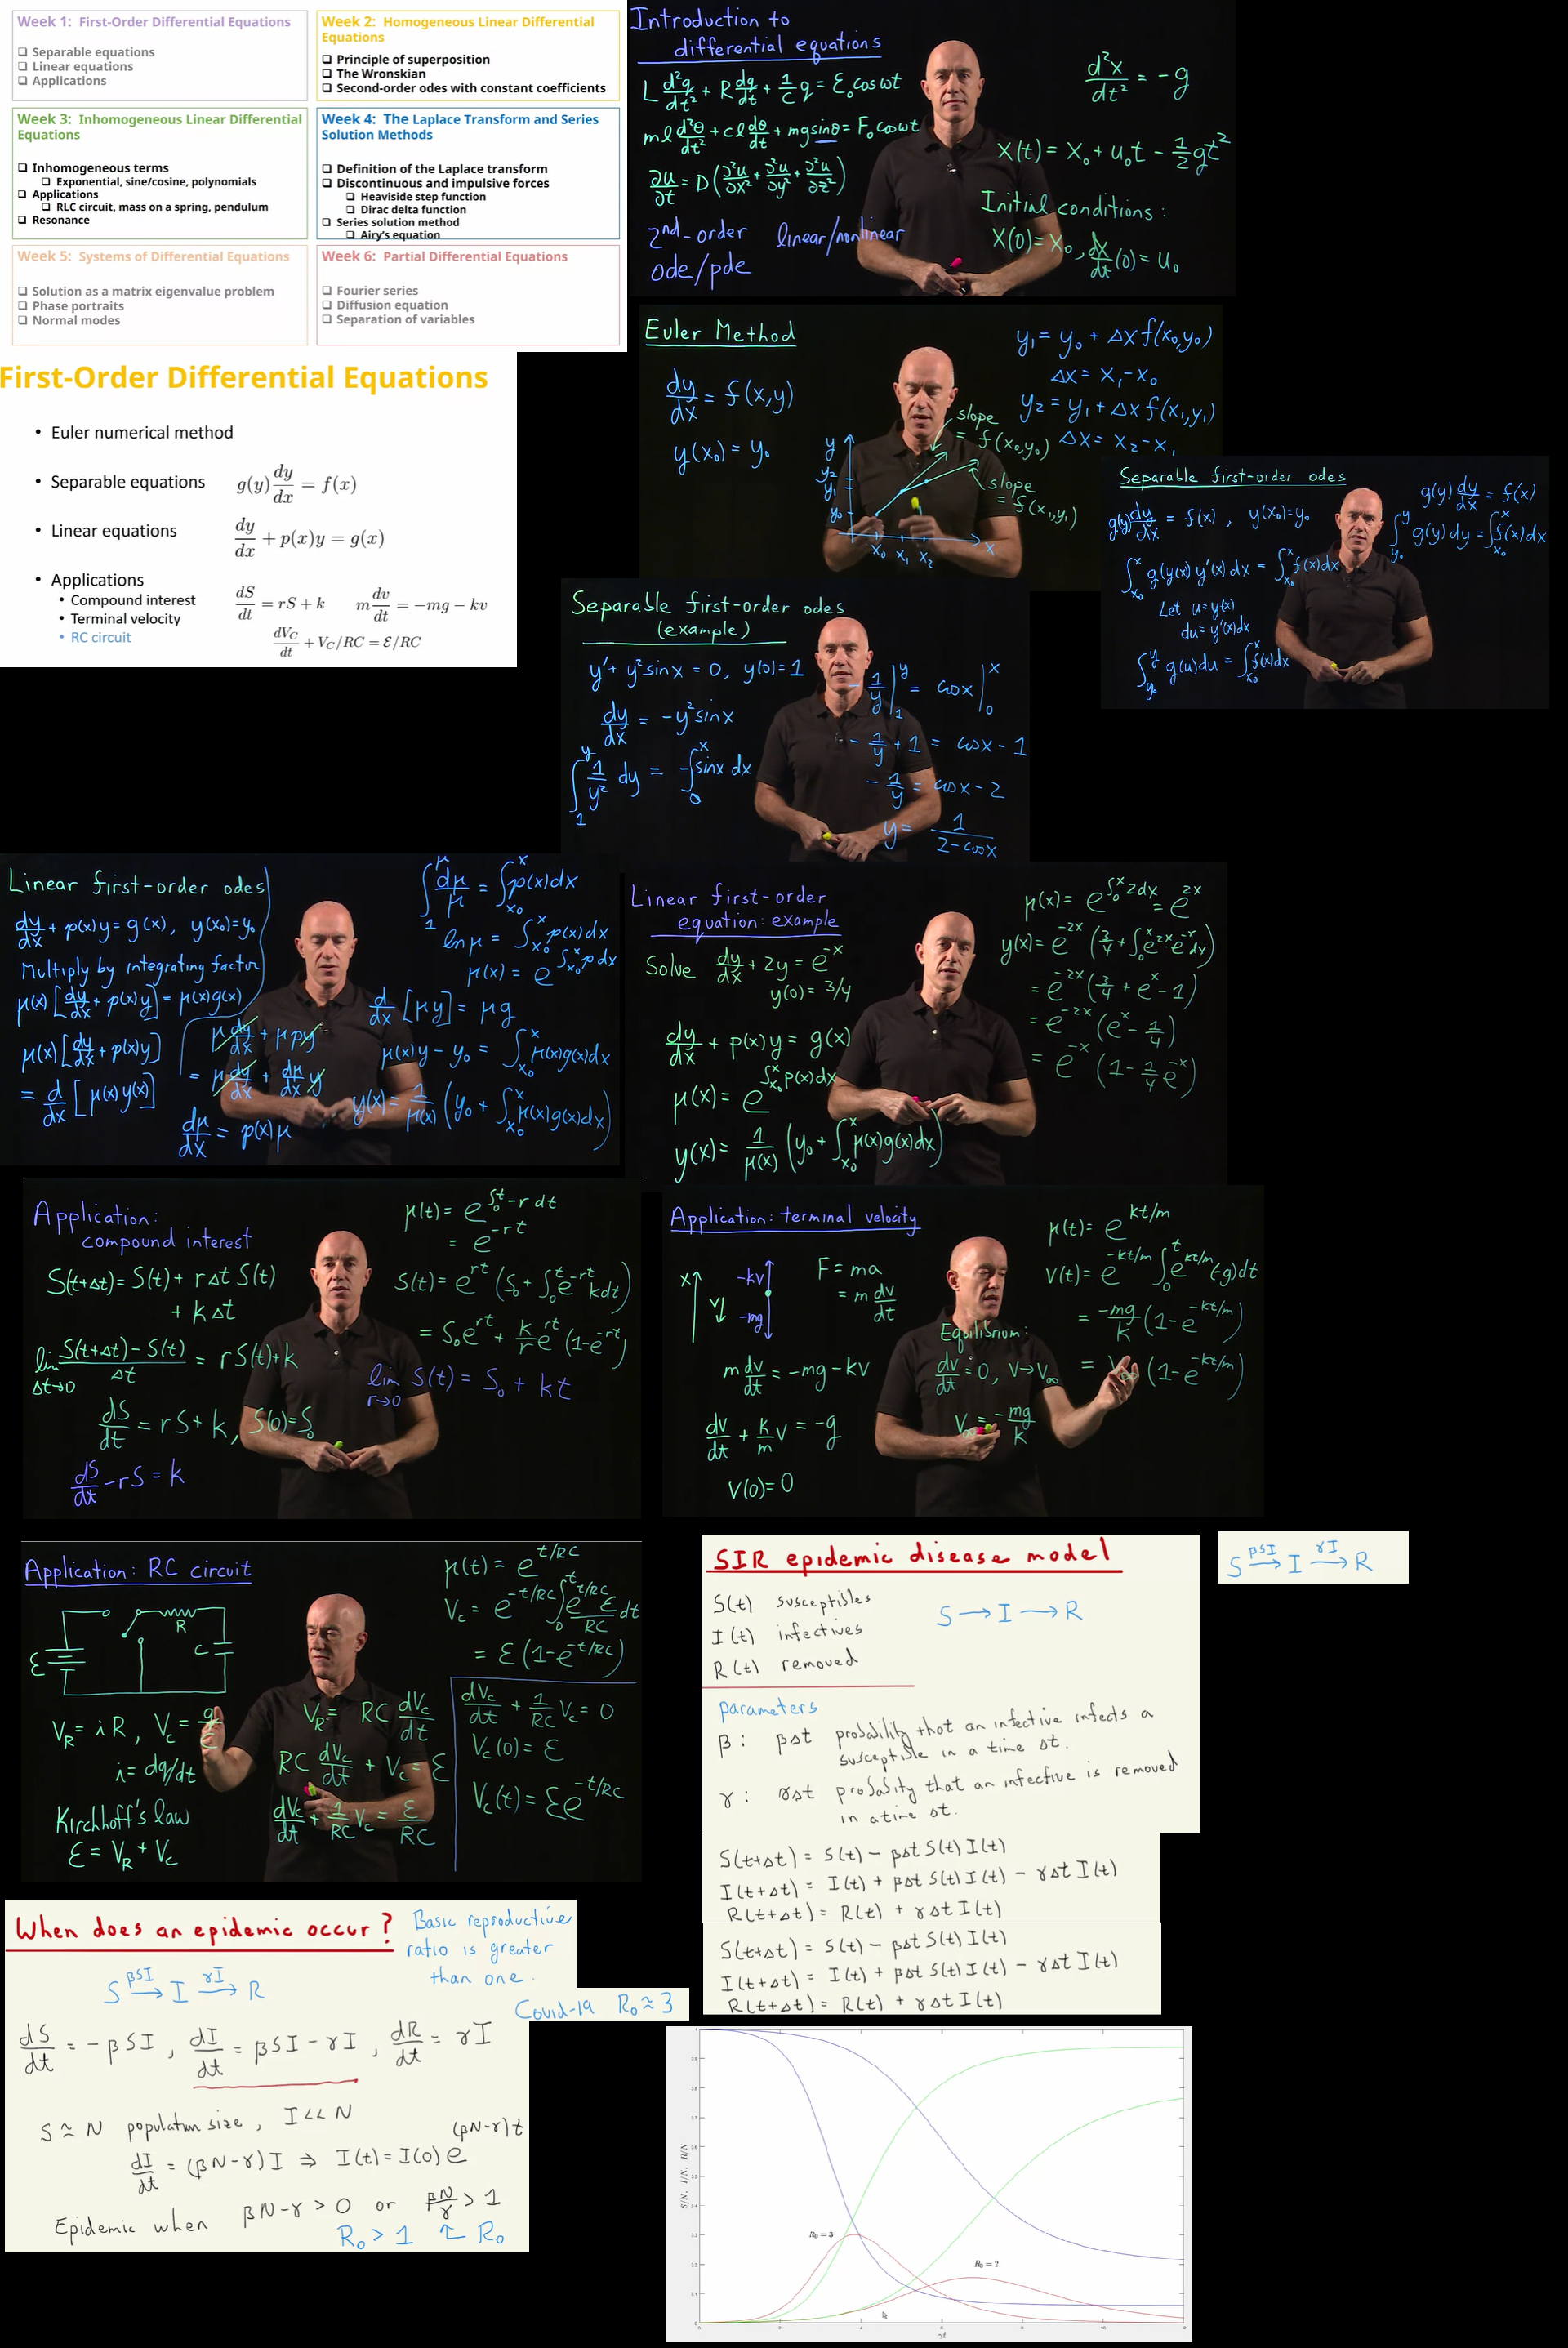 Week 1: First-Order Differential Equations
❑ Separable equations
❑ Linear equations
❑ Applications
Week 2: Homogeneous Linear Differential
Equations
❑ Principle of superposition
❑ The Wronskian
❑ Second-order odes with constant coefficients
Week 3: Inhomogeneous Linear Differential
Equations
❑ Inhomogeneous terms
❑ Exponential, sine/cosine, polynomials
❑ Applications
❑ RLC circuit, mass on a spring, pendulum
❑ Resonance
Week 4: The Laplace Transform and Series
Solution Methods
❑ Definition of the Laplace transform
❑ Discontinuous and impulsive forces
❑ Heaviside step function
❑ Dirac delta function
❑ Series solution method
❑ Airy's equation
Week 5: Systems of Differential Equations
❑ Solution as a matrix eigenvalue problem
❑ Phase portraits
❑ Normal modes
Week 6: Partial Differential Equations
❑ Fourier series
❑ Diffusion equation
❑ Separation of variables
Introduction to
differential equations
L d²q/dt² + R dq/dt + 1/C q = ℰ₀ cos ωt
ml d²θ/dt² + cl dθ/dt + mg sinθ = F₀ cos ωt
∂u/∂t = D(∂²u/∂x² + ∂²u/∂y² + ∂²u/∂z²)
2nd-order linear/nonlinear
ode/pde
d²x/dt² = -g
x(t) = x₀ + u₀t - ½gt²
Initial conditions:
x(0) = x₀, dx/dt(0) = u₀
First-Order Differential Equations
• Euler numerical method
• Separable equations g(y) dy/dx = f(x)
• Linear equations dy/dx + p(x)y = g(x)
• Applications
• Compound interest dS/dt = rS + k
• Terminal velocity m dv/dt = -mg - kv
• RC circuit dV_C/dt + V_C/RC = ℰ/RC
Euler Method
dy/dx = f(x,y)
y(x₀) = y₀
y
y₂
y₁
y₀
x₀ x₁ x₂ x
slope
= f(x₀,y₀)
slope
= f(x₁,y₁)
y₁ = y₀ + Δx f(x₀,y₀)
Δx = x₁-x₀
y₂ = y₁ + Δx f(x₁,y₁)
Δx = x₂-x₁
Separable first-order odes
g(y) dy/dx = f(x), y(x₀)=y₀
∫_{x₀}^x g(y(x)) y'(x) dx = ∫_{x₀}^x f(x) dx
Let u = y(x)
du = y'(x) dx
∫_{y₀}^y g(u) du = ∫_{x₀}^x f(x) dx
g(y) dy/dx = f(x)
∫_{y₀}^y g(y) dy = ∫_{x₀}^x f(x) dx
Separable first-order odes
(example)
y' + y² sin x = 0, y(0) = 1
dy/dx = -y² sin x
∫_1^y 1/y² dy = -∫_0^x sin x dx
-1/y |_1^y = cos x |_0^x
-1/y + 1 = cos x - 1
-1/y = cos x - 2
y = 1/(2-cos x)
Linear first-order odes
dy/dx + p(x)y = g(x), y(x₀)=y₀
Multiply by integrating factor
μ(x)[dy/dx + p(x)y] = μ(x)g(x)
μ(x)[dy/dx + p(x)y]
= d/dx [μ(x)y(x)]
μ dy/dx + μpy
= μ dy/dx + dμ/dx y
dμ/dx = p(x)μ
∫_1^μ dμ/μ = ∫_{x₀}^x p(x)dx
ln μ = ∫_{x₀}^x p(x)dx
μ(x) = e^{∫_{x₀}^x p dx}
d/dx [μy] = μg
μ(x)y - y₀ = ∫_{x₀}^x μ(x)g(x)dx
y(x) = 1/μ(x) (y₀ + ∫_{x₀}^x μ(x)g(x)dx)
Linear first-order
equation: example
Solve dy/dx + 2y = e^{-x}
y(0) = 3/4
dy/dx + p(x)y = g(x)
μ(x) = e^{∫_{x₀}^x p(x)dx}
y(x) = 1/μ(x) (y₀ + ∫_{x₀}^x μ(x)g(x)dx)
μ(x) = e^{∫_0^x 2dx} = e^{2x}
y(x) = e^{-2x}(3/4 + ∫_0^x e^{2x}e^{-x}dx)
= e^{-2x}(3/4 + e^x - 1)
= e^{-2x}(e^x - 1/4)
= e^{-x}(1 - 1/4 e^{-x})
Application:
compound interest
S(t+Δt) = S(t) + rΔt S(t)
+ kΔt
lim_{Δt→0} (S(t+Δt) - S(t))/Δt = rS(t)+k
dS/dt = rS + k, S(0)=S₀
dS/dt - rS = k
μ(t) = e^{∫_0^t -r dt}
= e^{-rt}
S(t) = e^{rt}(S₀ + ∫_0^t e^{-rt} k dt)
= S₀e^{rt} + k/r e^{rt}(1-e^{-rt})
lim_{r→0} S(t) = S₀ + kt
Application: terminal velocity
x v -kv -mg
F = ma
= m dv/dt
m dv/dt = -mg - kv
dv/dt + k/m v = -g
v(0) = 0
Equilibrium:
dv/dt = 0, v→v∞
v∞ = -mg/k
μ(t) = e^{kt/m}
v(t) = e^{-kt/m} ∫_0^t e^{kt/m}(-g)dt
= -mg/k (1-e^{-kt/m})
= v∞ (1-e^{-kt/m})
Application: RC circuit
ℰ R C
V_R = iR, V_c = q/c
i = dq/dt
Kirchhoff's law
ℰ = V_R + V_c
V_R = RC dV_c/dt
RC dV_c/dt + V_c = ℰ
dV_c/dt + 1/RC V_c = ℰ/RC
μ(t) = e^{t/RC}
V_c = e^{-t/RC} ∫_0^t e^{t/RC} ℰ/RC dt
= ℰ(1-e^{-t/RC})
dV_c/dt + 1/RC V_c = 0
V_c(0) = ℰ
V_c(t) = ℰe^{-t/RC}
SIR epidemic disease model
S(t) susceptibles
I(t) infectives
R(t) removed
S → I → R
parameters
β: βΔt probability that an infective infects a
susceptible in a time Δt.
γ: γΔt probability that an infective is removed
in a time Δt.
S(t+Δt) = S(t) - βΔt S(t) I(t)
I(t+Δt) = I(t) + βΔt S(t) I(t) - γΔt I(t)
R(t+Δt) = R(t) + γΔt I(t)
S(t+Δt) = S(t) - βΔt S(t) I(t)
I(t+Δt) = I(t) + βΔt S(t) I(t) - γΔt I(t)
R(t+Δt) = R(t) + γΔt I(t)
S →^{βSI} I →^{γI} R
When does an epidemic occur?
Basic reproductive
ratio is greater
than one.
S →^{βSI} I →^{γI} R
Covid-19 R₀ ≈ 3
dS/dt = -βSI, dI/dt = βSI - γI, dR/dt = γI
S ≈ N population size, I << N
dI/dt = (βN-γ)I ⇒ I(t) = I(0) e^{(βN-γ)t}
Epidemic when βN-γ > 0 or βN/γ > 1
R₀ > 1 R₀
S/N, I/N, R/N
R₀ = 3
R₀ = 2
γt